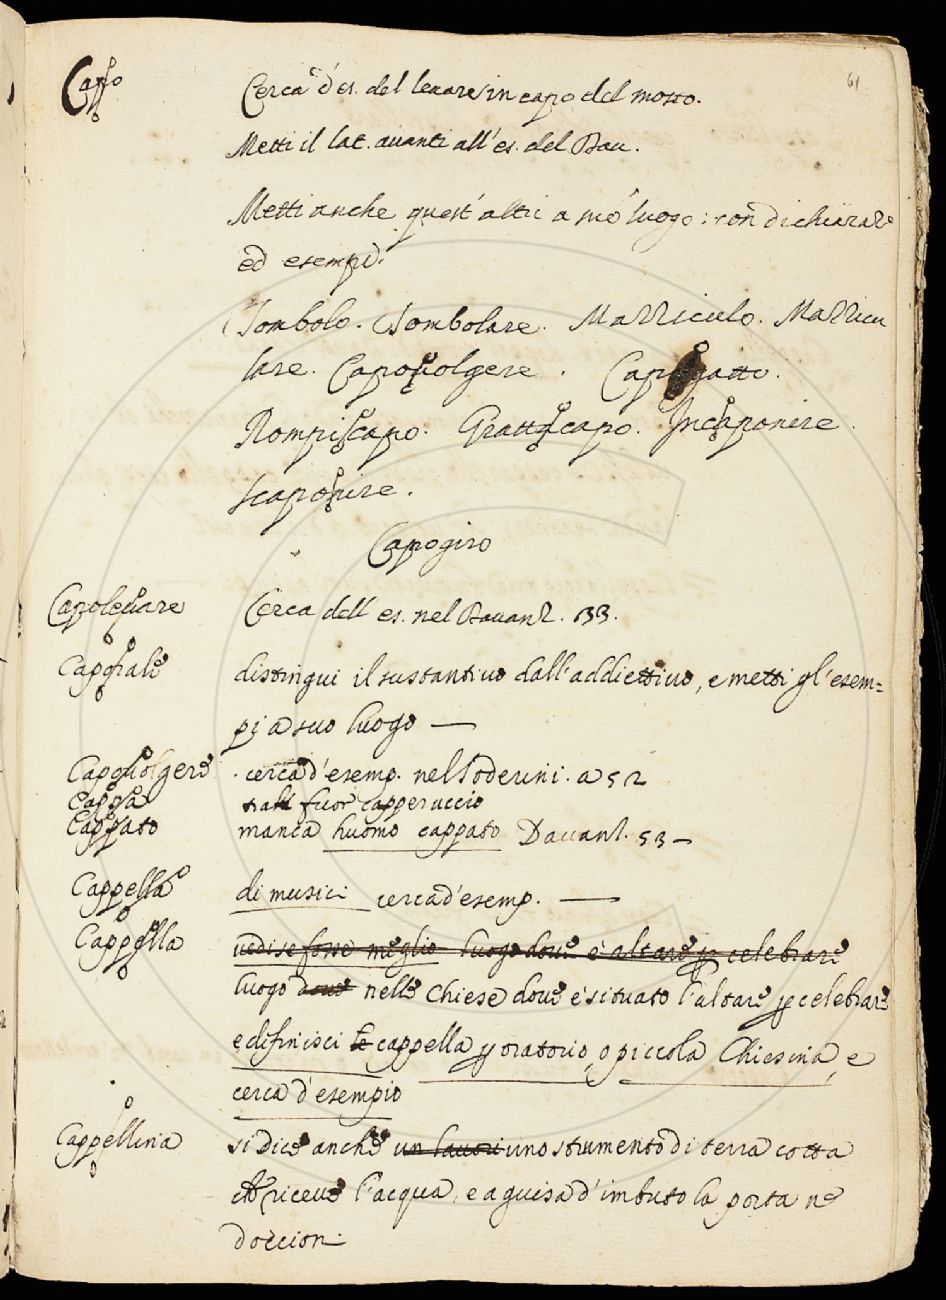 61
Capo Cerca d'es. del leuare in capo del mosto.
Metti il lat. auanti all'es. del Dau.
Metti anche quest'altri a suo luogo: con dichiaraz.e
ed esempi.
Tombolo. Tombolare. Mazziculo. Mazzicu
lare. Capouolgere. Capogatto.
Rompiscapo. Grattacapo. Incaponire.
scaponire.
Capogiro
Capoleuare Cerca dell es. nel Dauanz. 133.
Caporale distingui il sustantiuo dall'addiettiuo, e metti gl'esem=
pi a suo luogo —
Capouolgere . cerca d'esemp. nel Soderini. a 52
Cappa fuor capperuccio
Cappato manca huomo cappato Dauanz. 53 —
Cappella di musici cerca d'esemp. —
Cappella uedi se forse meglio luogo doue è altare p celebrare
luogo doue nelle Chiese doue è situato l'altare p celebrare
e difinisci cappella p oratorio, o piccola Chiesina, e
cerca d'esempio
Cappellina si dice anche un lauori uno strumento di terra cotta
che riceue l'acqua, e a guisa d'imbuto la porta ne
doccion.